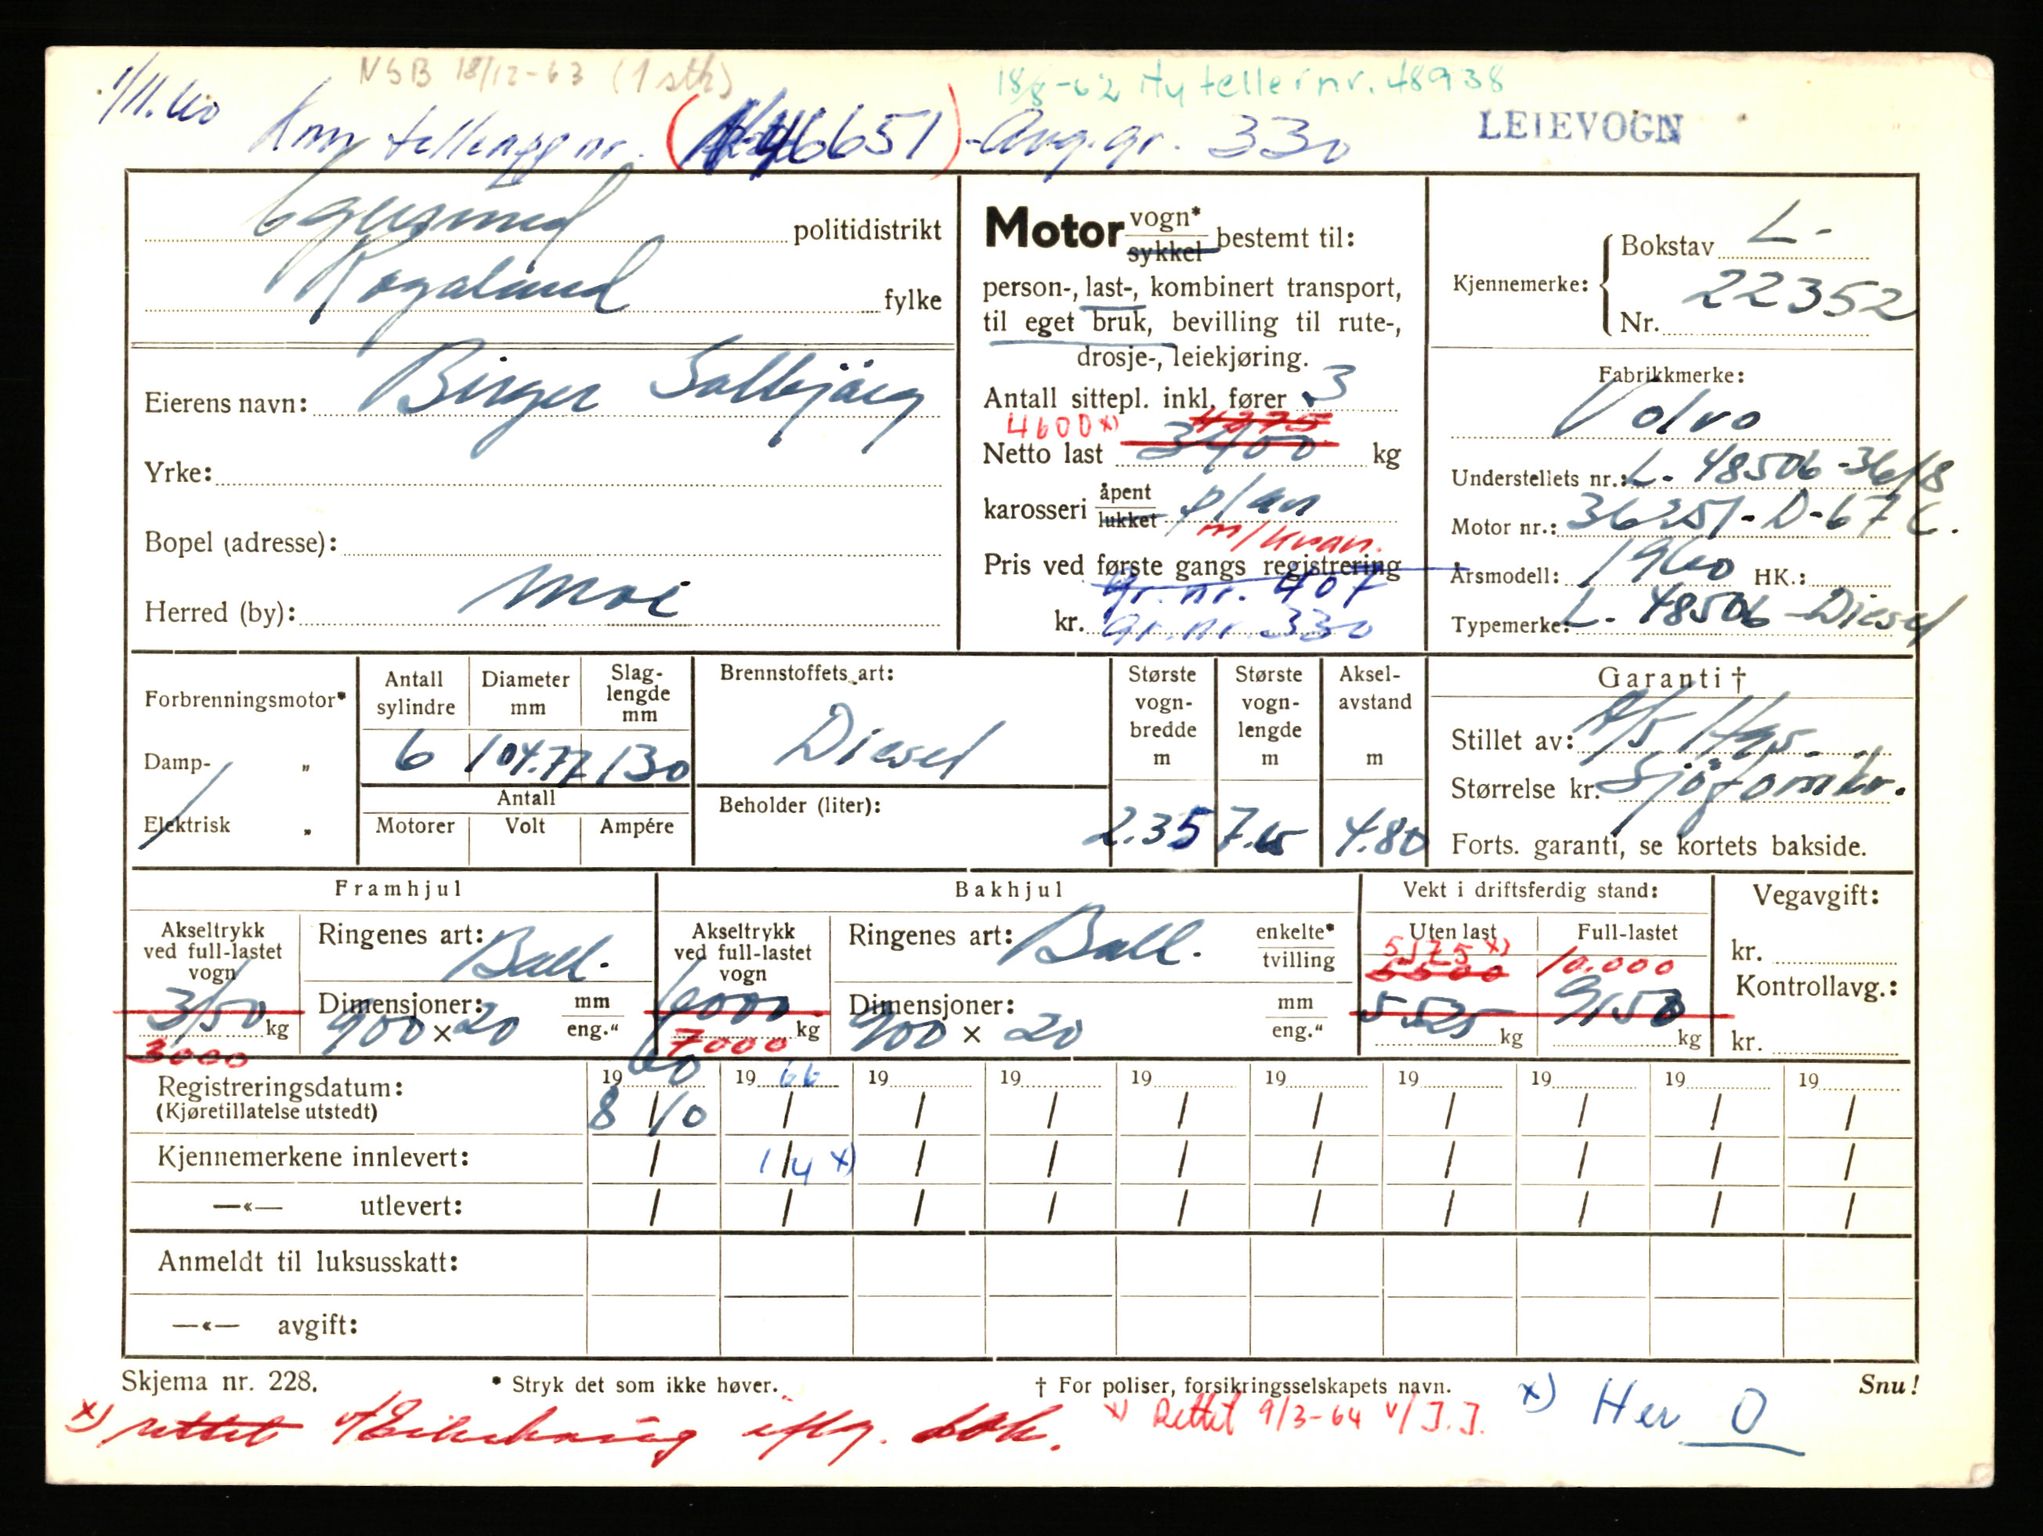 NSB 18/12-63 (1 stk)
18/8-62 Ny teller nr. 48938
1/11.60
Km tellerapp nr. (46651) - Avg.gr. 330
LEIEVOGN
Egersund politidistrikt
Rogaland fylke
Eierens navn: Birger Solbjørg
Yrke:
Bopel (adresse):
Herred (by): Moi
Motor vogn* sykkel bestemt til:
person-, last-, kombinert transport,
til eget bruk, bevilling til rute-,
drosje-, leiekjøring.
Antall sittepl. inkl. fører 3
4600 x) 4375
Netto last 3400 kg
karosseri åpent lukket plan
m/kran.
Pris ved første gangs registrering
gr. nr. 407
kr. gr. nr. 330
Kjennemerke: Bokstav L-
Nr. 22352
Fabrikkmerke:
Volvo
Understellets nr.: L. 48506-3618
Motor nr.: 36251-D-67 C.
Årsmodell: 1960 HK.:
Typemerke: L. 48506-Diesel
Forbrenningsmotor*
Damp- „
Elektrisk „
Antall sylindre
Diameter mm
Slag-lengde mm
6 104.77 130
Antall
Motorer Volt Ampére
Brennstoffets art:
Diesel
Beholder (liter):
Største vogn-bredde m
2.35
Største vogn-lengde m
7.65
Aksel-avstand m
4.80
Garanti †
Stillet av: A/S Norges
Størrelse kr.
Forts. garanti, se kortets bakside.
Framhjul
Akseltrykk ved full-lastet vogn
3150 kg
3000
Ringenes art: Ball.
Dimensjoner: mm
900 x 20 eng."
Bakhjul
Akseltrykk ved full-lastet vogn
6000 kg
7000
Ringenes art: Ball. enkelte* tvilling
Dimensjoner: mm
900 x 20 eng."
Vekt i driftsferdig stand:
Uten last Full-lastet
5175 x)
5500 10.000
5525 kg 9150 kg
Vegavgift:
kr.
Kontrollavg.:
kr.
Registreringsdatum: 1960 1966 19 19 19 19 19 19 19 19
(Kjøretillatelse utstedt) 8/10 / / / / / / / / /
Kjennemerkene innlevert: / 1/4 x) / / / / / / / /
—«— utlevert: / / / / / / / / / /
Anmeldt til luksusskatt:
—«— avgift:
Skjema nr. 228.
* Stryk det som ikke høver.
† For poliser, forsikringsselskapets navn.
Snu!
x) rettet
x) Rettet 9/3-64 v/J.J.
x) Her O